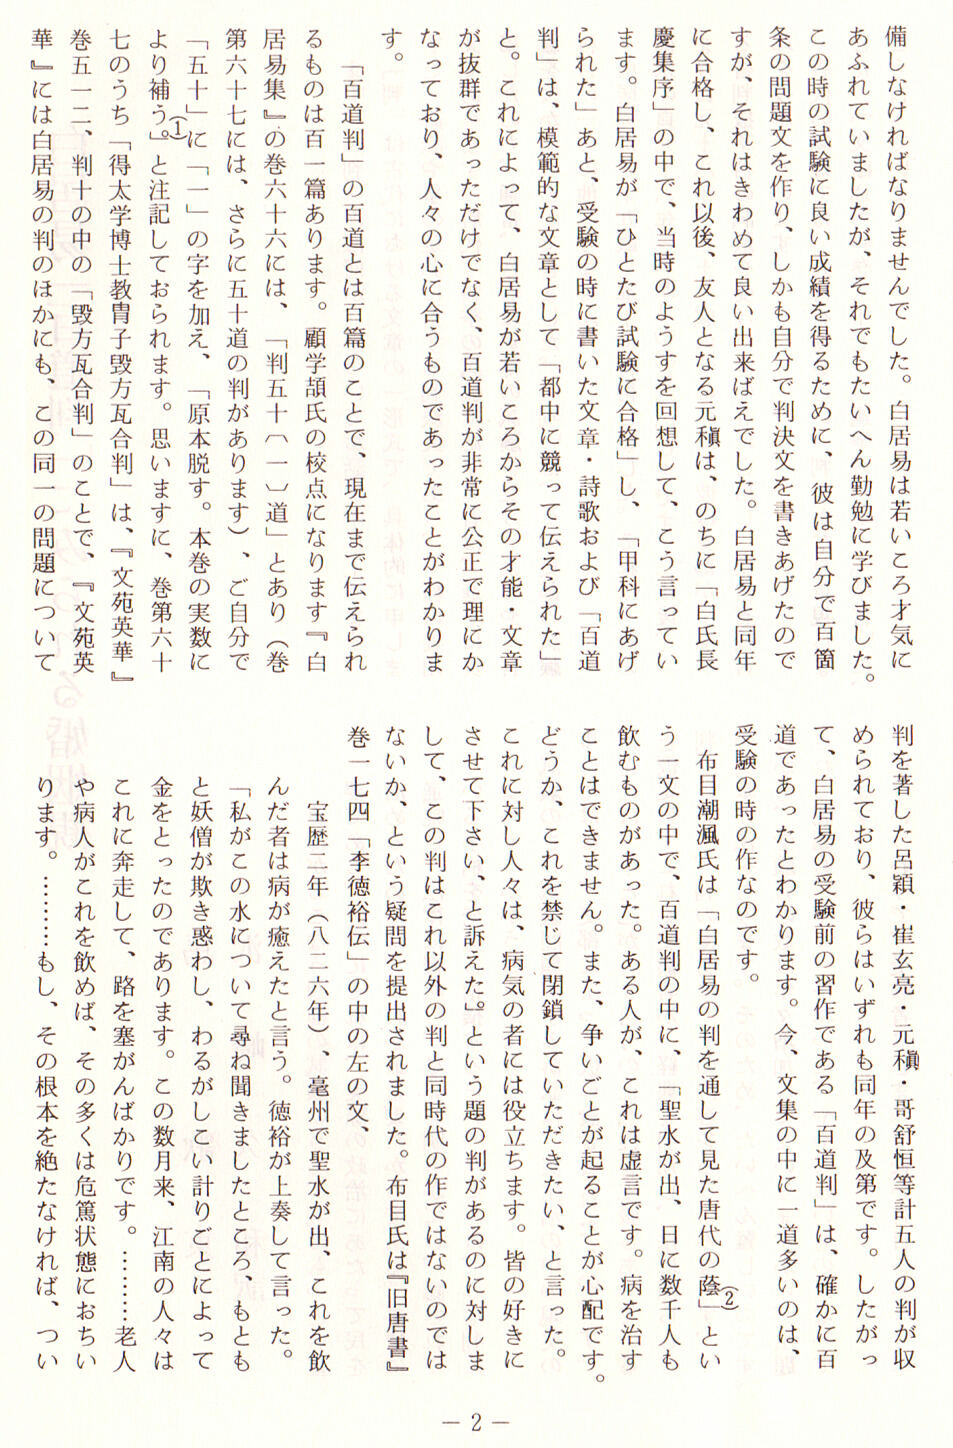 備しなければなりませんでした。白居易は若いころ才気に
あふれていましたが、それでもたいへん勤勉に学びました。
この時の試験に良い成績を得るために、彼は自分で百箇
条の問題文を作り、しかも自分で判決文を書きあげたので
すが、それはきわめて良い出来ばえでした。白居易と同年
に合格し、これ以後、友人となる元稹は、のちに「白氏長
慶集序」の中で、当時のようすを回想して、こう言ってい
ます。白居易が「ひとたび試験に合格」し、「甲科にあげ
られた」あと、受験の時に書いた文章・詩歌および「百道
判」は、模範的な文章として「都中に競って伝えられた」
と。これによって、白居易が若いころからその才能・文章
が抜群であっただけでなく、百道判が非常に公正で理にか
なっており、人々の心に合うものであったことがわかりま
す。
「百道判」の百道とは百篇のことで、現在まで伝えられ
るものは百一篇あります。顧学頡氏の校点になります『白
居易集』の巻六十六には、「判五十〔一〕道」とあり（巻
第六十七には、さらに五十道の判があります）、ご自分で
「五十」に「一」の字を加え、「原本脱す。本巻の実数に
より補う。」(1)と注記しておられます。思いますに、巻第六十
七のうち「得太学博士教胄子毀方瓦合判」は、『文苑英華』
巻五一二、判十の中の「毀方瓦合判」のことで、『文苑英
華』には白居易の判のほかにも、この同一の問題について
判を著した呂穎・崔玄亮・元稹・哥舒恒等計五人の判が収
められており、彼らはいずれも同年の及第です。したがっ
て、白居易の受験前の習作である「百道判」は、確かに百
道であったとわかります。今、文集の中に一道多いのは、
受験の時の作なのです。
布目潮渢氏は「白居易の判を通して見た唐代の蔭」(2)とい
う一文の中で、百道判の中に、「聖水が出、日に数千人も
飲むものがあった。ある人が、これは虚言です。病を治す
ことはできません。また、争いごとが起ることが心配です。
どうか、これを禁じて閉鎖していただきたい、と言った。
これに対し人々は、病気の者には役立ちます。皆の好きに
させて下さい、と訴えた。」という題の判があるのに対しま
して、この判はこれ以外の判と同時代の作ではないのでは
ないか、という疑問を提出されました。布目氏は『旧唐書』
巻一七四「李徳裕伝」の中の左の文、
宝歴二年（八二六年）、亳州で聖水が出、これを飲
んだ者は病が癒えたと言う。徳裕が上奏して言った。
「私がこの水について尋ね聞きましたところ、もとも
と妖僧が欺き惑わし、わるがしこい計りごとによって
金をとったのであります。この数月来、江南の人々は
これに奔走して、路を塞がんばかりです。………老人
や病人がこれを飲めば、その多くは危篤状態におちい
ります。………もし、その根本を絶たなければ、つい
— 2 —